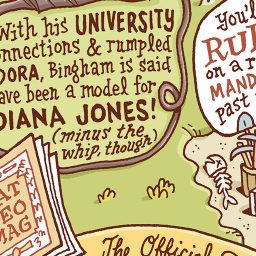 With his UNIVERSITY
connections & rumpled
DORA, Bingham is said
have been a model for
DIANA JONES!
(minus the
whip, though)
You'll
RU
on a r
MAND
past
AT
EO
MAG
The Official